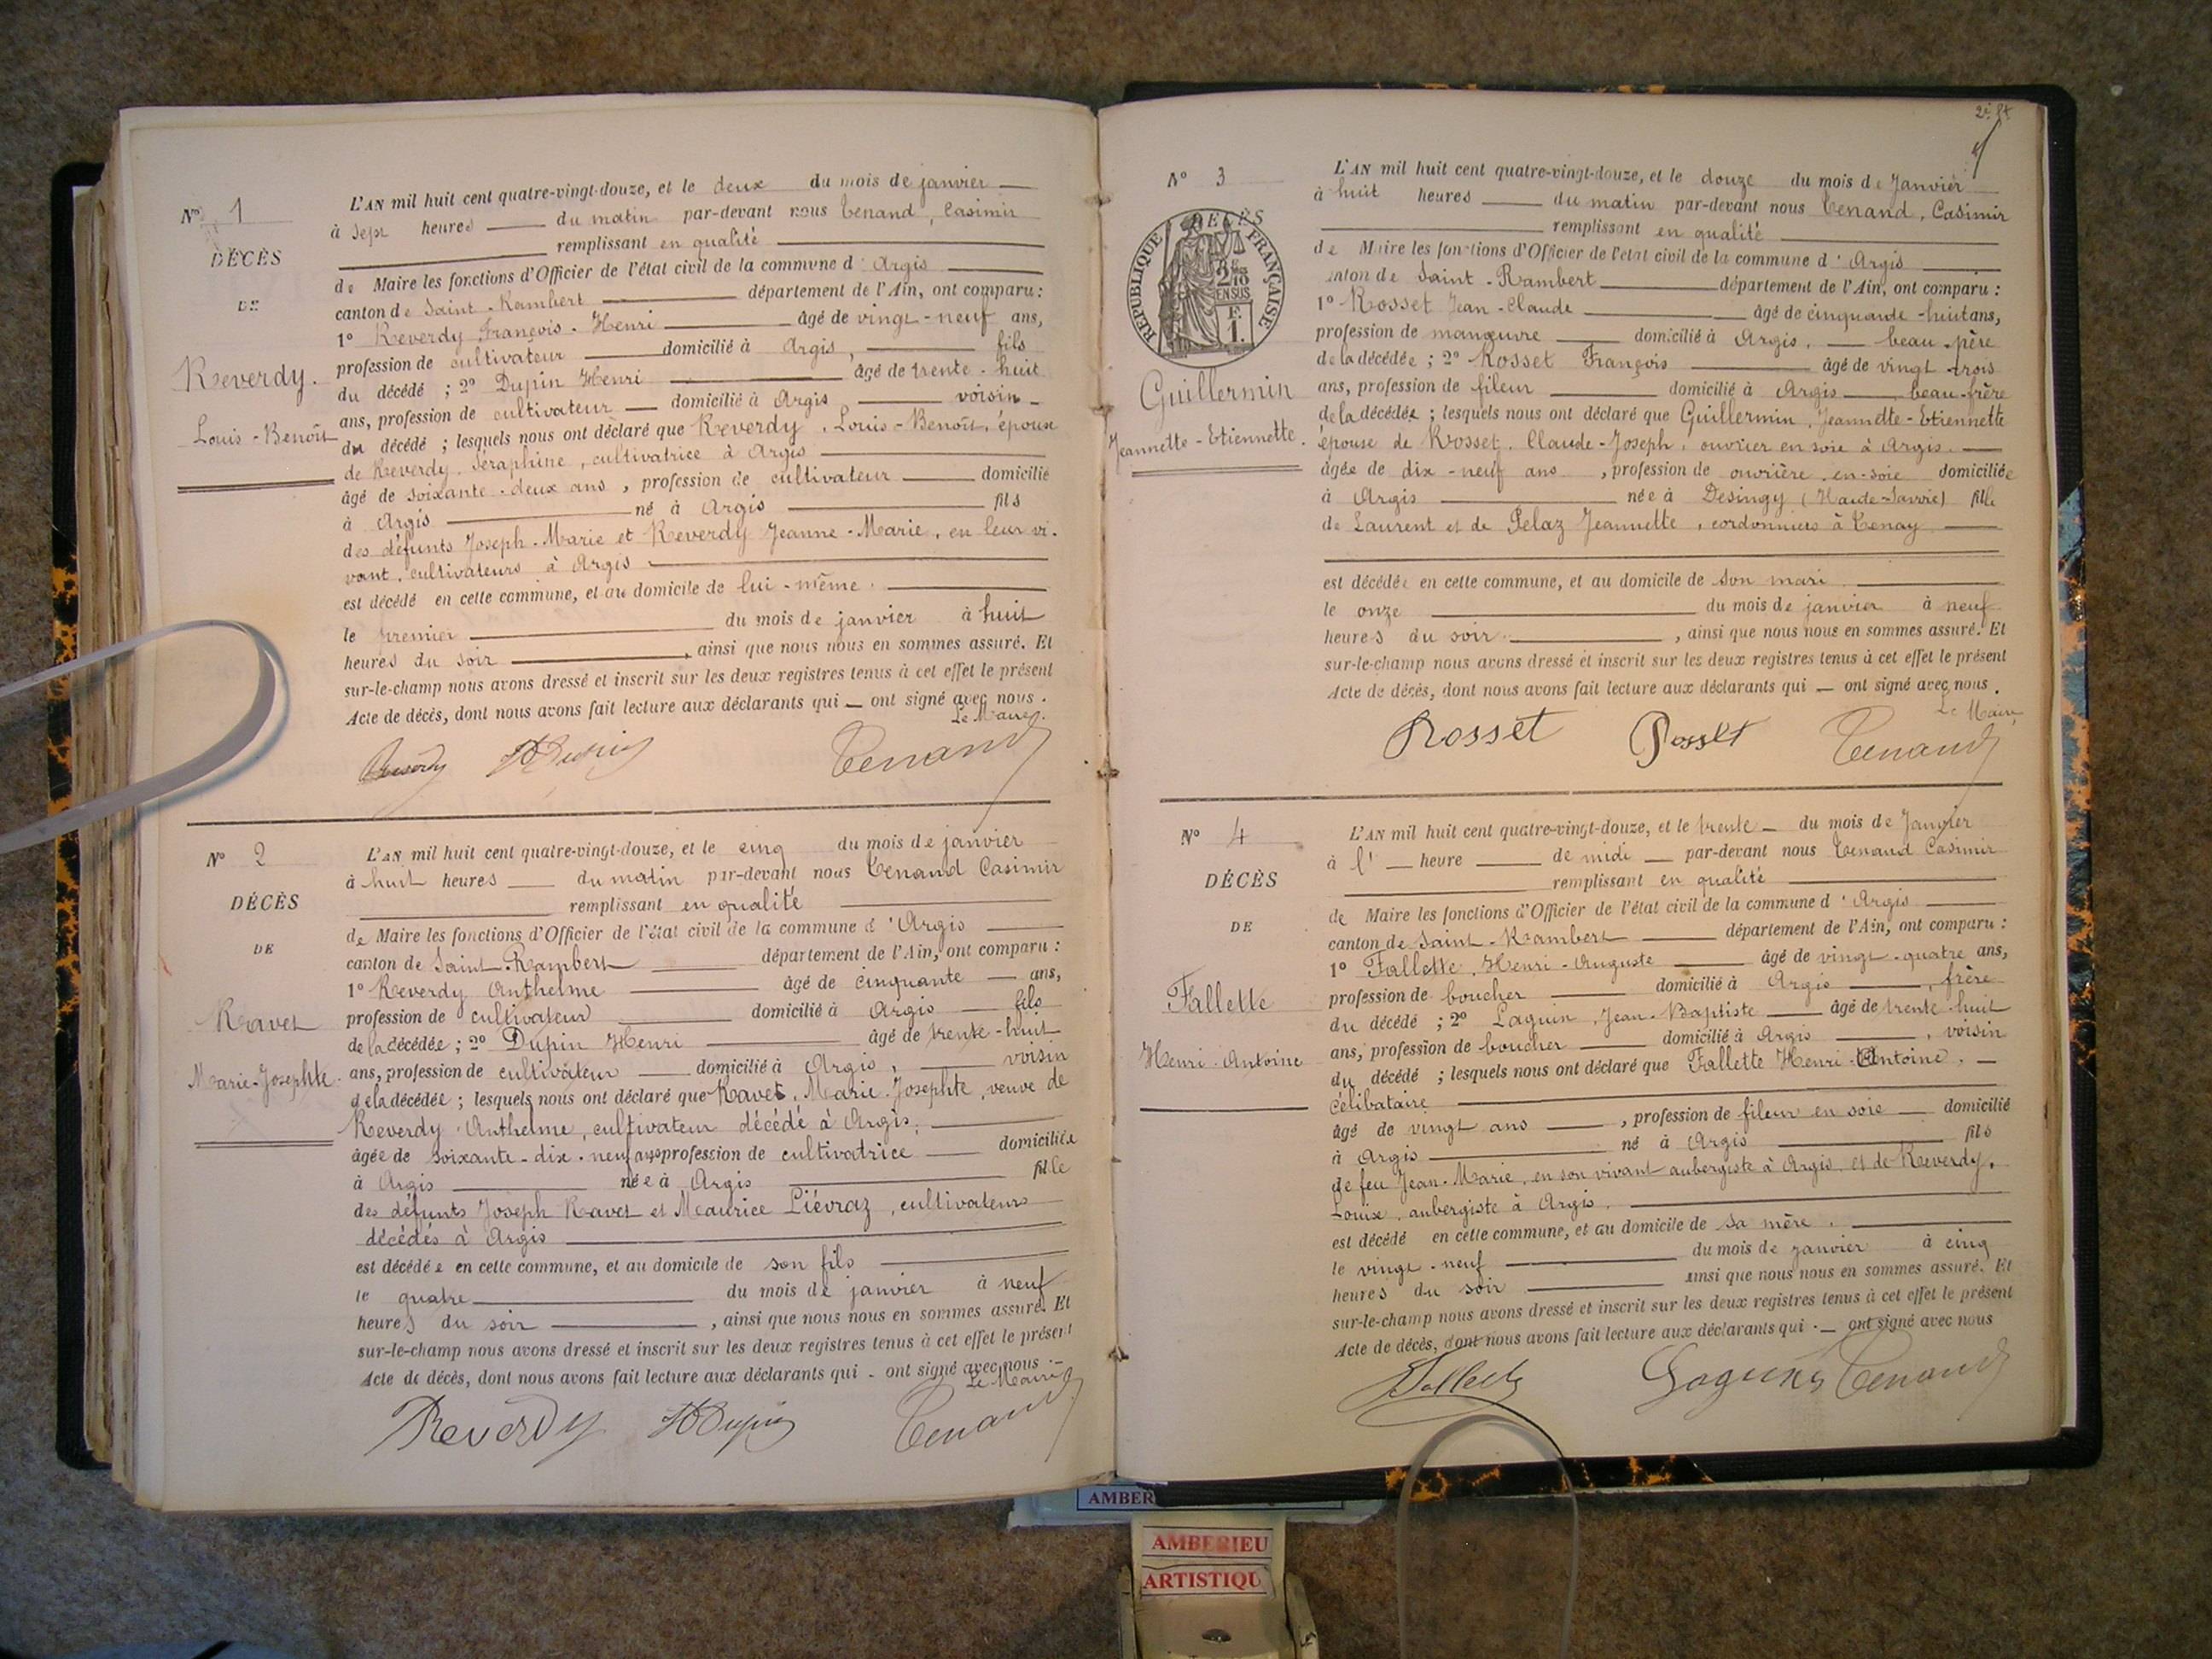 N° 1
DÉCÈS
DE
Reverdy.
Louis-Benoît
L'AN mil huit cent quatre-vingt-douze, et le deux du mois de janvier
à sept heures du matin par-devant nous Tenand, Casimir
remplissant en qualité
de Maire les fonctions d'Officier de l'état civil de la commune d'Argis
canton de Saint-Rambert département de l'Ain, ont comparu :
1° Reverdy François-Henri âgé de vingt-neuf ans,
profession de cultivateur domicilié à Argis, fils
du décédé ; 2° Dupin Henri âgé de trente-huit
ans, profession de cultivateur domicilié à Argis voisin
du décédé ; lesquels nous ont déclaré que Reverdy, Louis-Benoît, époux
de Reverdy Séraphine, cultivatrice à Argis
âgé de soixante-deux ans, profession de cultivateur domicilié
à Argis né à Argis fils
des défunts Joseph-Marie et Reverdy Jeanne-Marie, en leur vi-
vant, cultivateurs à Argis
est décédé en cette commune, et au domicile de lui-même.
le premier du mois de janvier à huit
heures du soir, ainsi que nous nous en sommes assuré. Et
sur-le-champ nous avons dressé et inscrit sur les deux registres tenus à cet effet le présent
Acte de décès, dont nous avons fait lecture aux déclarants qui ont signé avec nous.
Le Maire,
Reverdy HDupin Tenand
N° 2
DÉCÈS
DE
Ravet
Marie-Josephte.
L'AN mil huit cent quatre-vingt-douze, et le cinq du mois de janvier
à huit heures du matin par-devant nous Tenand Casimir
remplissant en qualité
de Maire les fonctions d'Officier de l'état civil de la commune d'Argis
canton de Saint-Rambert département de l'Ain, ont comparu :
1° Reverdy Anthelme âgé de cinquante ans,
profession de cultivateur domicilié à Argis fils
de la décédée ; 2° Dupin Henri âgé de trente-huit
ans, profession de cultivateur domicilié à Argis, voisin
de la décédée ; lesquels nous ont déclaré que Ravet, Marie-Josephte, veuve de
Reverdy Anthelme, cultivateur décédé à Argis,
âgée de soixante-dix-neuf ans profession de cultivatrice domiciliée
à Argis née à Argis fille
des défunts Joseph Ravet et Maurice Liévraz, cultivateurs
décédés à Argis
est décédée en cette commune, et au domicile de son fils
le quatre du mois de janvier à neuf
heures du soir, ainsi que nous nous en sommes assuré. Et
sur-le-champ nous avons dressé et inscrit sur les deux registres tenus à cet effet le présent
Acte de décès, dont nous avons fait lecture aux déclarants qui ont signé avec nous.
Le Maire
Reverdy HDupin Tenand
N° 3
RÉPUBLIQUE FRANÇAISE
2/10
EN SUS
F.
1.
DÉCÈS
Guillermin
Jeannette-Etiennette.
L'AN mil huit cent quatre-vingt-douze, et le douze du mois de Janvier
à huit heures du matin par-devant nous Tenand, Casimir
remplissant en qualité
de Maire les fonctions d'Officier de l'état civil de la commune d'Argis
canton de Saint-Rambert département de l'Ain, ont comparu :
1° Rosset Jean-Claude âgé de cinquante-huit ans,
profession de manœuvre domicilié à Argis, beau-père
de la décédée ; 2° Rosset François âgé de vingt-trois
ans, profession de fileur domicilié à Argis, beau-frère
de la décédée ; lesquels nous ont déclaré que Guillermin, Jeannette-Etiennette
épouse de Rosset, Claude-Joseph, ouvrier en soie à Argis.
âgée de dix-neuf ans, profession de ouvrière en soie domiciliée
à Argis née à Desingy (Haute-Savoie) fille
de Laurent et de Pelaz Jeannette, cordonniers à Tenay
est décédée en cette commune, et au domicile de son mari
le onze du mois de janvier à neuf
heures du soir, ainsi que nous nous en sommes assuré. Et
sur-le-champ nous avons dressé et inscrit sur les deux registres tenus à cet effet le présent
Acte de décès, dont nous avons fait lecture aux déclarants qui ont signé avec nous.
Le Maire,
Rosset Rosset Tenand
N° 4
DÉCÈS
DE
Fallette
Henri-Antoine
L'AN mil huit cent quatre-vingt-douze, et le trente du mois de Janvier
à l' heure de midi par-devant nous Tenand Casimir
remplissant en qualité
de Maire les fonctions d'Officier de l'état civil de la commune d'Argis
canton de Saint-Rambert département de l'Ain, ont comparu :
1° Fallette, Henri-Auguste âgé de vingt-quatre ans,
profession de boucher domicilié à Argis, frère
du décédé ; 2° Laguin, Jean-Baptiste âgé de trente-huit
ans, profession de boucher domicilié à Argis, voisin
du décédé ; lesquels nous ont déclaré que Fallette Henri-Antoine,
célibataire
âgé de vingt ans, profession de fileur en soie domicilié
à Argis né à Argis fils
de feu Jean-Marie, en son vivant aubergiste à Argis, et de Reverdy,
Louise, aubergiste à Argis.
est décédé en cette commune, et au domicile de sa mère.
le vingt-neuf du mois de janvier à cinq
heures du soir ainsi que nous nous en sommes assuré. Et
sur-le-champ nous avons dressé et inscrit sur les deux registres tenus à cet effet le présent
Acte de décès, dont nous avons fait lecture aux déclarants qui ont signé avec nous
Fallette Laguin Tenand
AMBER
AMBERIEU
ARTISTIQU